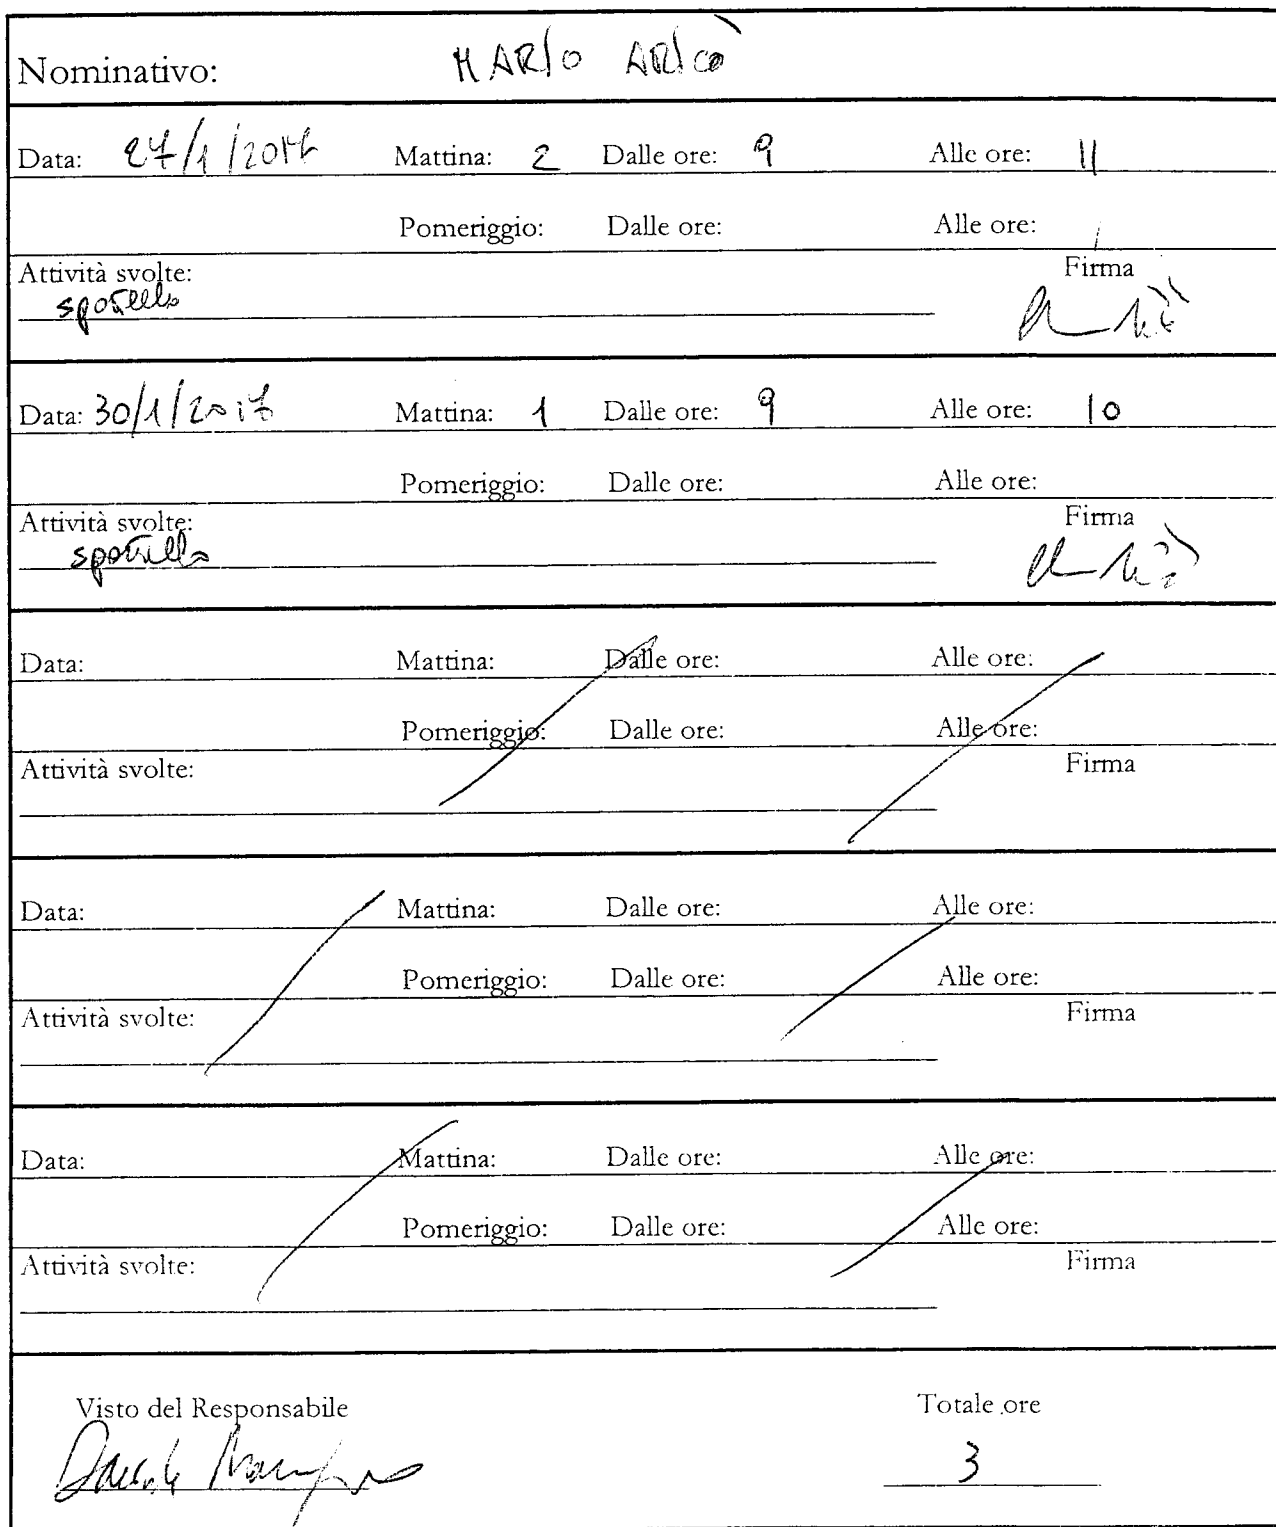 Nominativo: MARIO ARICÒ
Data: 27/1/2017 Mattina: 2 Dalle ore: 9 Alle ore: 11
Pomeriggio: Dalle ore: Alle ore:
Attività svolte: Firma
sportello
Data: 30/1/2017 Mattina: 1 Dalle ore: 9 Alle ore: 10
Pomeriggio: Dalle ore: Alle ore:
Attività svolte: Firma
sportello
Data: Mattina: Dalle ore: Alle ore:
Pomeriggio: Dalle ore: Alle ore:
Attività svolte: Firma
Data: Mattina: Dalle ore: Alle ore:
Pomeriggio: Dalle ore: Alle ore:
Attività svolte: Firma
Data: Mattina: Dalle ore: Alle ore:
Pomeriggio: Dalle ore: Alle ore:
Attività svolte: Firma
Visto del Responsabile Totale ore
3